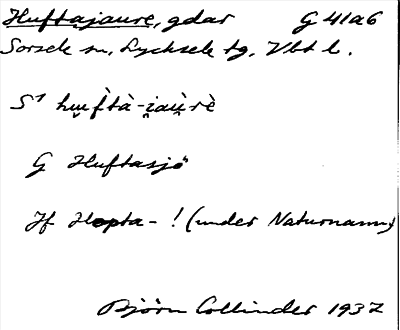 Huftajaure, gdar G 41a6
Sorsele sn, Lycksele tg, Vbt l.
S¹ hu̯fˋtà-i̯au̯ˋrè
G Huftasjö
Jf Hopta- ! (under Naturnamn)
Björn Collinder 1937